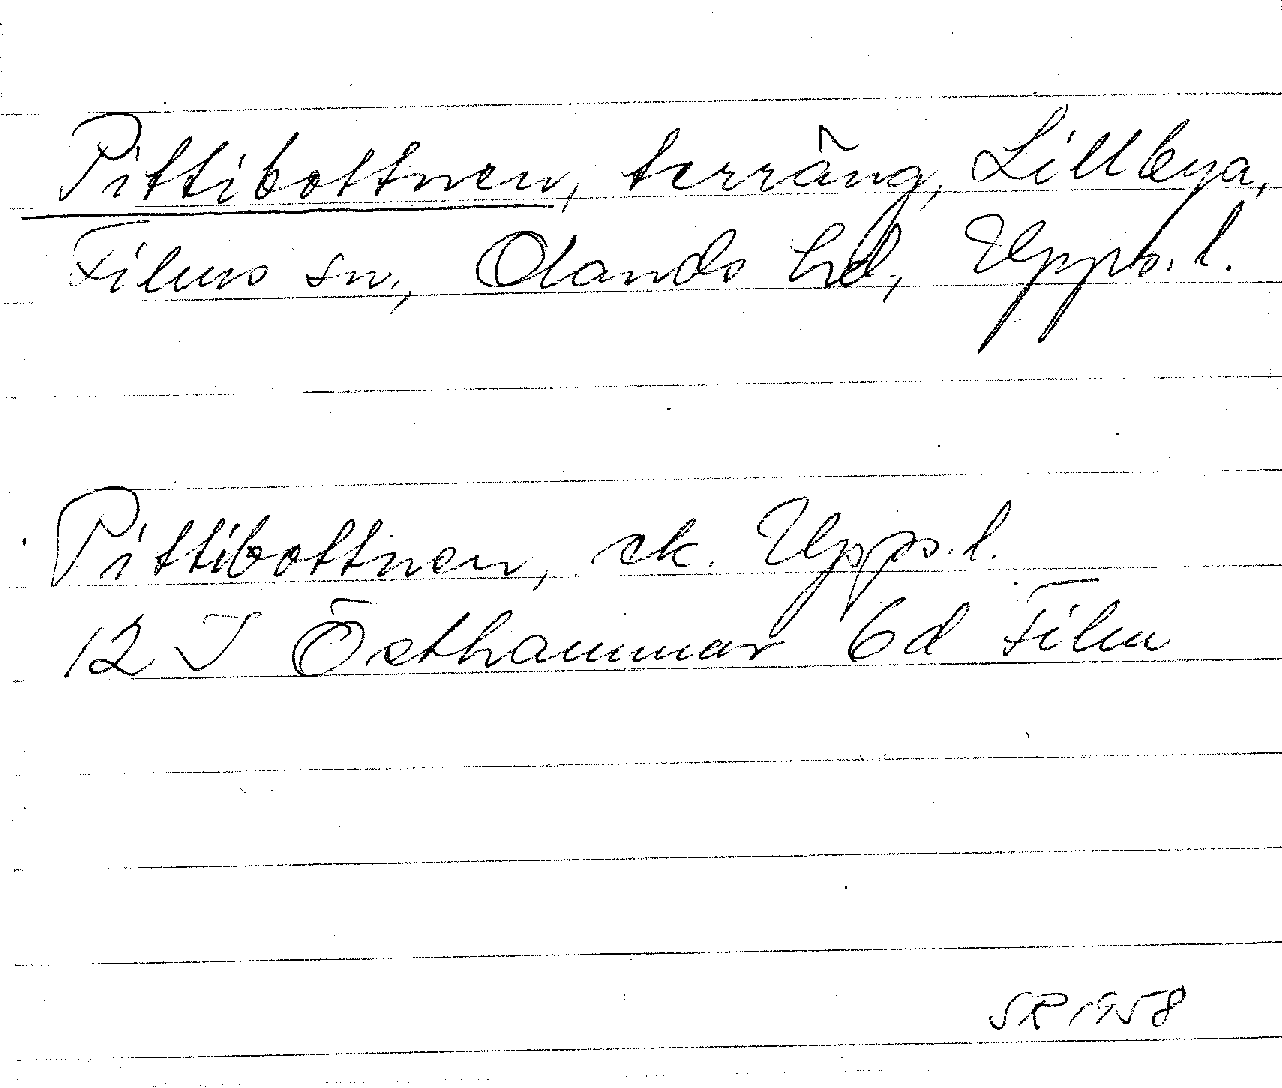 Pittibottnen, terräng, Lillbya,
Films sn, Olands hd, Upps. l.
Pittibottnen, ek. Upps. l.
12 I Östhammar 6d Film
SR 1958